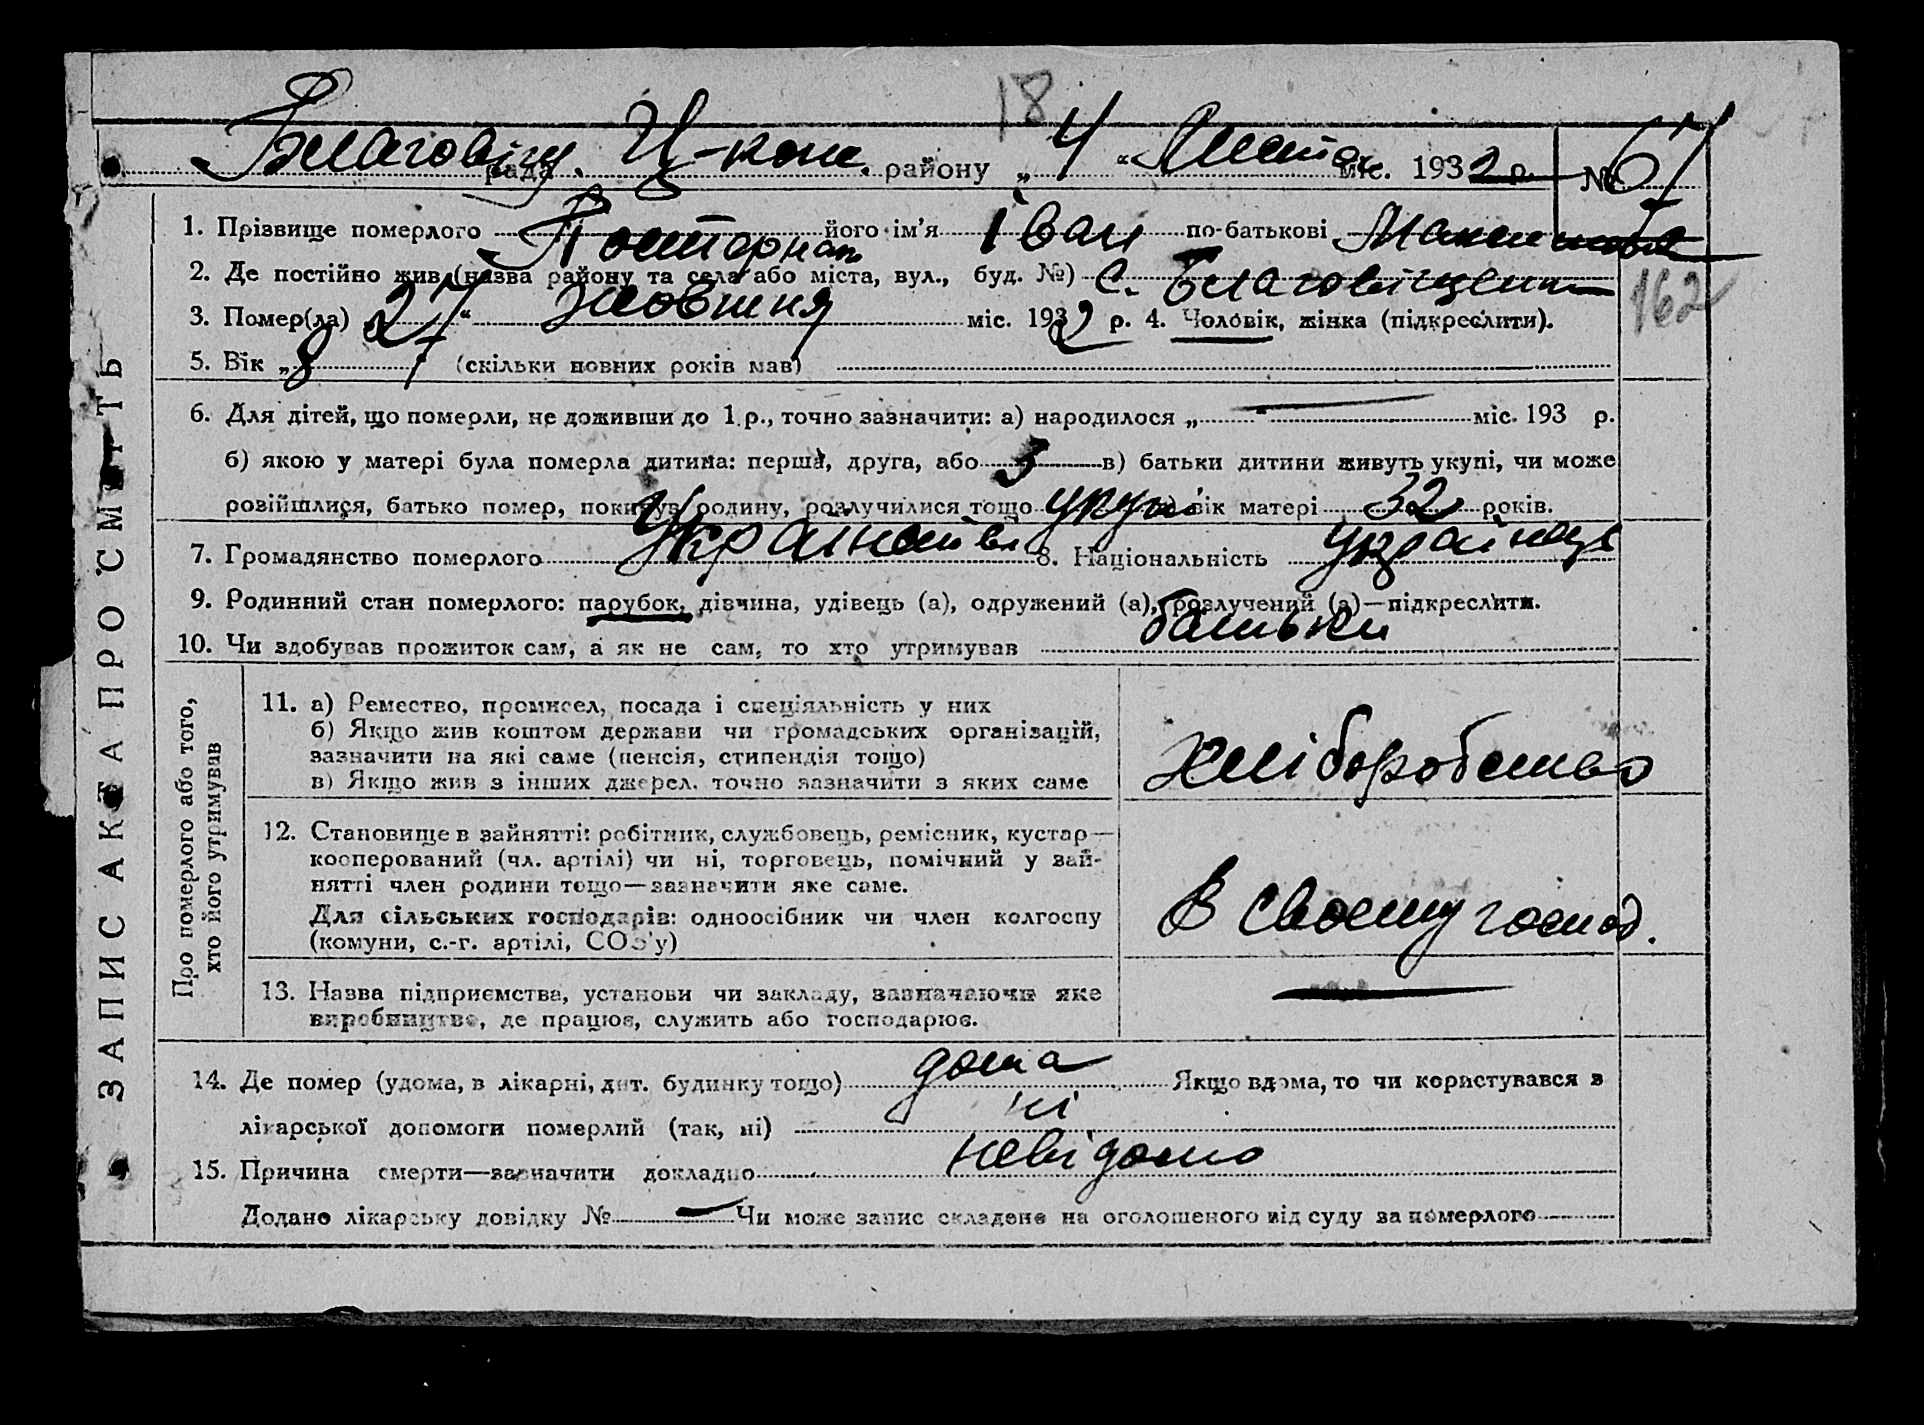 18
Благовіщ. рада Ц-кош. району „4“ Листоп міс. 1932 р. № 67
1. Прізвище померлого Постернак його ім'я Іван по-батькові
2. Де постійно жив (назва району та села або міста, вул., буд. №) с. Благовіщенк
3. Помер(ла) 27 “ жовтня міс. 1932 р. 4. Чоловік, жінка (підкреслити).
162
5. Вік „8 (скільки повних років мав)
6. Для дітей, що померли, не доживши до 1 р., точно зазначити: а) народилося „ “ міс. 193 р.
б) якою у матері була померла дитина: перша, друга, або 3 в) батьки дитини живуть укупі, чи може
розійшлися, батько помер, покинув родину, розлучилися тощо укупі вік матері 32 років.
7. Громадянство померлого 8. Національність українець
9. Родинний стан померлого: парубок, дівчина, удівець (а), одружений (а), розлучений (а)—підкреслити.
10. Чи здобував прожиток сам, а як не сам, то хто утримував батьки
ЗАПИС АКТА ПРО СМЕРТЬ
Про померлого або того, хто його утримував
11. а) Ремество, промисел, посада і спеціяльність у них
б) Якщо жив коштом держави чи громадських організацій,
зазначити на які саме (пенсія, стипендія тощо)
в) Якщо жив з інших джерел, точно зазначити з яких саме
хліборобство
12. Становище в зайнятті: робітник, службовець, ремісник, кустар—
кооперований (чл. артілі) чи ні, торговець, помічний у зай-
нятті член родини тощо—зазначити яке саме.
Для сільських господарів: одноосібник чи член колгоспу
(комуни, с.-г. артілі, СОЗ'у)
В своєму господ.
13. Назва підприємства, установи чи закладу, зазначаючи яке
виробництво, де працює, служить або господарює.
14. Де помер (удома, в лікарні, дит. будинку тощо) дома Якщо вдома, то чи користувався з
лікарської допомоги померлий (так, ні) ні
15. Причина смерти—зазначити докладно невідомо
Додано лікарську довідку № — Чи може запис складене на оголошеного від суду за померлого